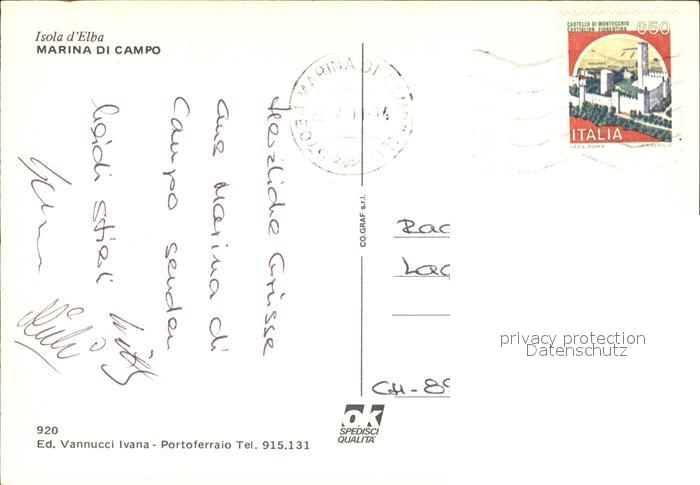 Isola d'Elba
MARINA DI CAMPO
CASTELLO DI MONTECCHIO
CASTIGLION FIORENTINO
650
ITALIA
I.P.Z.S. ROMA
MARINA DI
57034
Herzliche Grüsse
aus Marina di
Campo senden
Heidi
CO.GRAF s.r.l.
CH-89
privacy protection
Datenschutz
ok
SPEDISCI
QUALITA'
920
Ed. Vannucci Ivana - Portoferraio Tel. 915.131